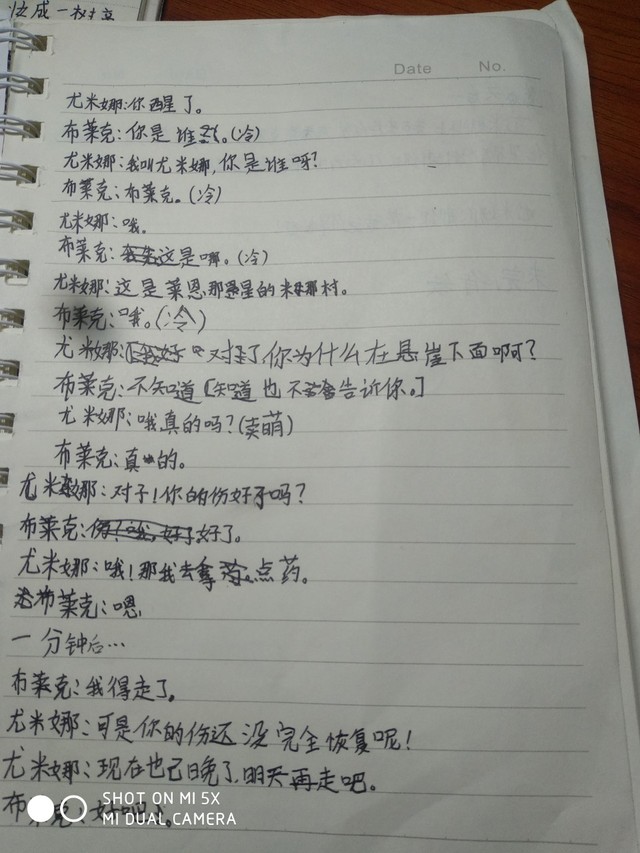 Date No.
尤米娜:你醒了。
布莱克:你是谁。(冷)
尤米娜:我叫尤米娜,你是谁呀?
布莱克:布莱克。(冷)
尤米娜:哦。
布莱克:这是哪。(冷)
尤米娜:这是莱恩那星的米娜村。
布莱克:哦。(冷)
尤米娜:对了你为什么在悬崖下面啊?
布莱克:不知道[知道也不会告诉你。]
尤米娜:哦真的吗?(卖萌)
布莱克:真的。
尤米娜:对了!你的伤好了吗?
布莱克:好了。
尤米娜:哦!那我去拿点药。
布莱克:嗯
一分钟后…
布莱克:我得走了。
尤米娜:可是你的伤还没完全恢复呢!
尤米娜:现在也已晚了,明天再走吧。
布莱克:好吧。
SHOT ON MI 5X
MI DUAL CAMERA